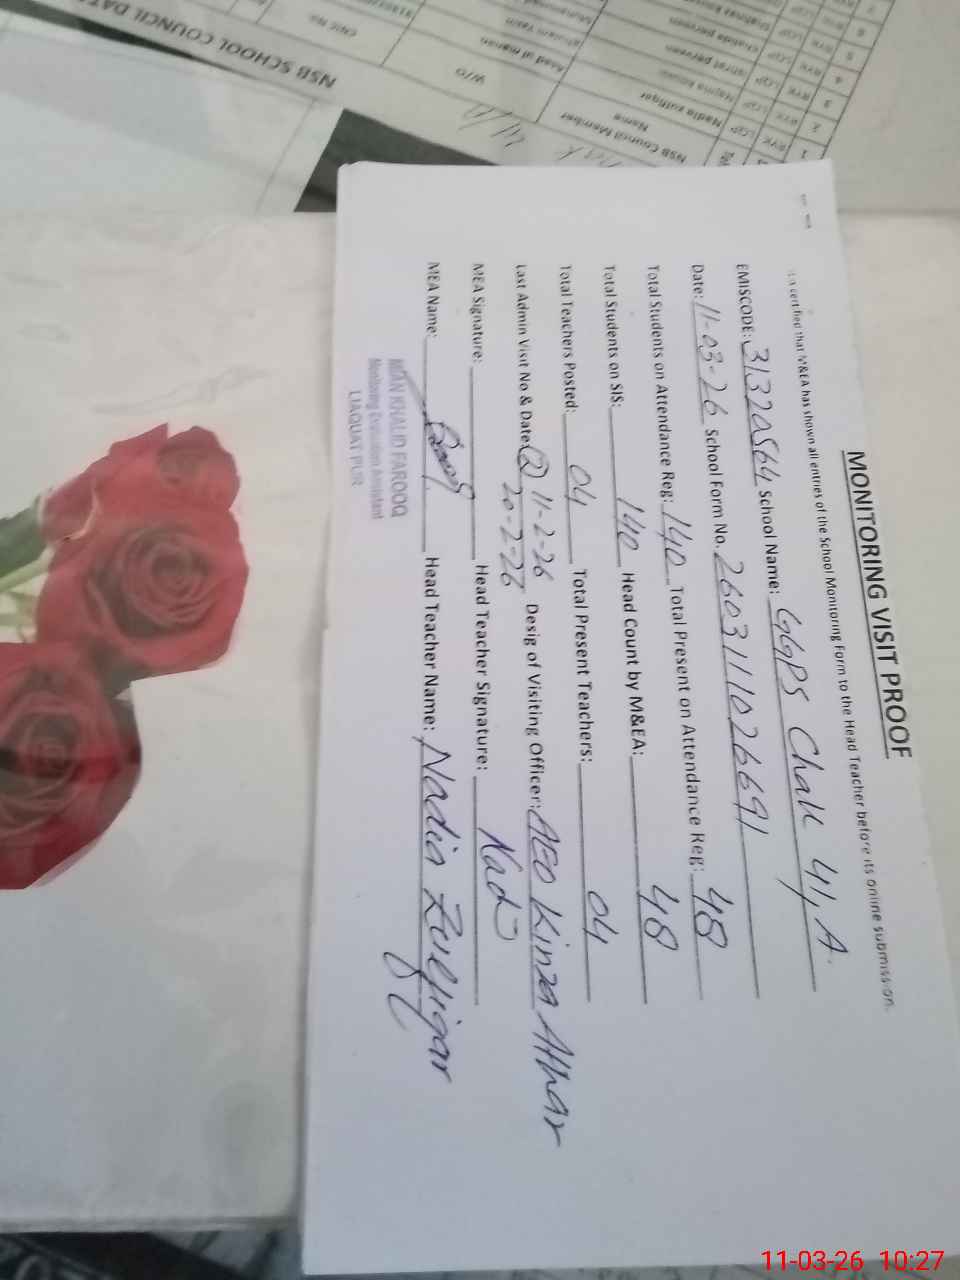 MONITORING VISIT PROOF
It is certified that M&EA has shown all entries of the School Monitoring Form to the Head Teacher before its online submission.
EMISCODE: 31320564 School Name: GGPS Chak 41, A.
Date: 11-03-26 School Form No. 2603111026691
Total Students on Attendance Reg: 140 Total Present on Attendance Reg: 48
Total Students on SIS: 140 Head Count by M&EA: 48
Total Teachers Posted: 04 Total Present Teachers: 04
Last Admin Visit No & Date: (2) 11-2-26 20-2-26 Desig of Visiting Officer: AEO Kinza Athar
MEA Signature: Head Teacher Signature: Nad
MEA Name: Head Teacher Name: Nadia Zulfiqar
MIAN KHALID FAROOQ
Monitoring Evaluation Assistant
LIAQUAT PUR
NSB SCHOOL COUNCIL DATA
CNIC No.
W/O
NSB Council Member
Name
1 RYK LQP Nadia zulfiqar
2 RYK LQP Najma
3 RYK LQP perveen
4 RYK LQP perveen
5
6
11-03-26 10:27